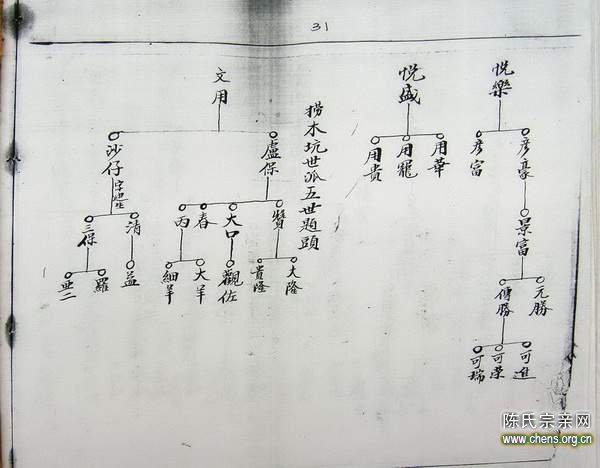 31
悅樂
彦豪
彦富
景富
元勝
傳勝
可進
可荣
可瑞
悅盛
用華
用寵
用貴
捞木坑世派五世題頭
文用
盧保
沙仔
贊
大口
春
丙
大隆
貴隆
觀佐
大羊
細羊
清
三保
益
羅
亚二
陈氏宗亲网
www.chens.org.cn